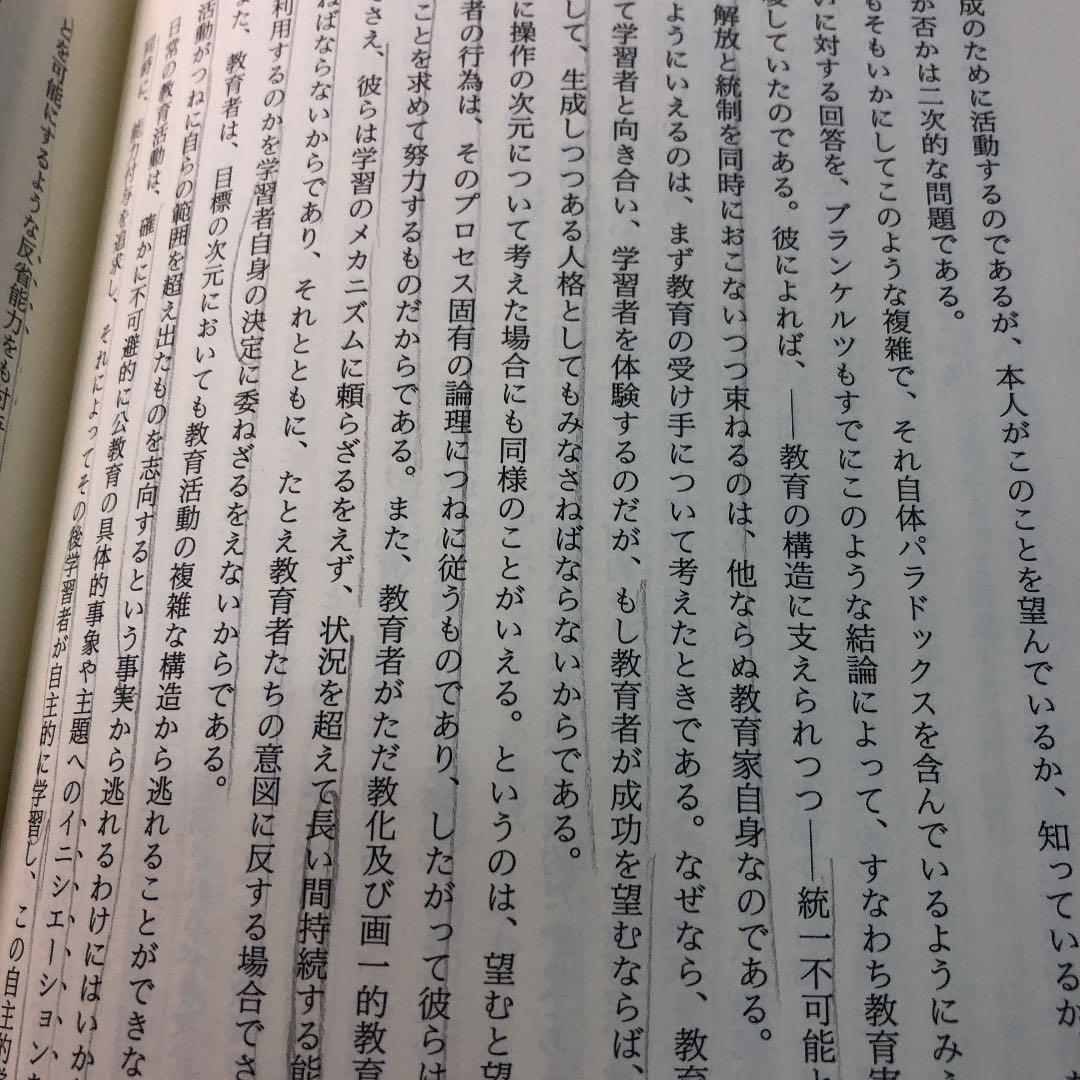 成のために活動するのであるが、本人がこのことを望んでいるか、知っているか
か否かは二次的な問題である。
もそもいかにしてこのような複雑で、それ自体パラドックスを含んでいるようにみ
いに対する回答を、ブランケルツもすでにこのような結論によって、すなわち教育実
愛していたのである。彼によれば、——教育の構造に支えられつつ——統一不可能と
解放と統制を同時におこないつつ束ねるのは、他ならぬ教育家自身なのである。
ようにいえるのは、まず教育の受け手について考えたときである。なぜなら、教育
て学習者と向き合い、学習者を体験するのだが、もし教育者が成功を望むならば、
して、生成しつつある人格としてもみなさねばならないからである。
に操作の次元について考えた場合にも同様のことがいえる。というのは、望むと望
者の行為は、そのプロセス固有の論理につねに従うものであり、したがって彼らは
ことを求めて努力するものだからである。また、教育者がただ教化及び画一的教育
さえ、彼らは学習のメカニズムに頼らざるをえず、状況を超えて長い間持続する能
ねばならないからであり、それとともに、たとえ教育者たちの意図に反する場合でさ
利用するのかを学習者自身の決定に委ねざるをえないからである。
また、教育者は、目標の次元においても教育活動の複雑な構造から逃れることができな
活動がつねに自らの範囲を超え出たものを志向するという事実から逃れるわけにはいか
日常の教育活動は、確かに不可避的に公教育の具体的事象や主題へのイニシエーションを
同時に、能力付与を追求し、それによってその後学習者が自主的に学習し、この自主的学
とを可能にするような反省能力をも付与